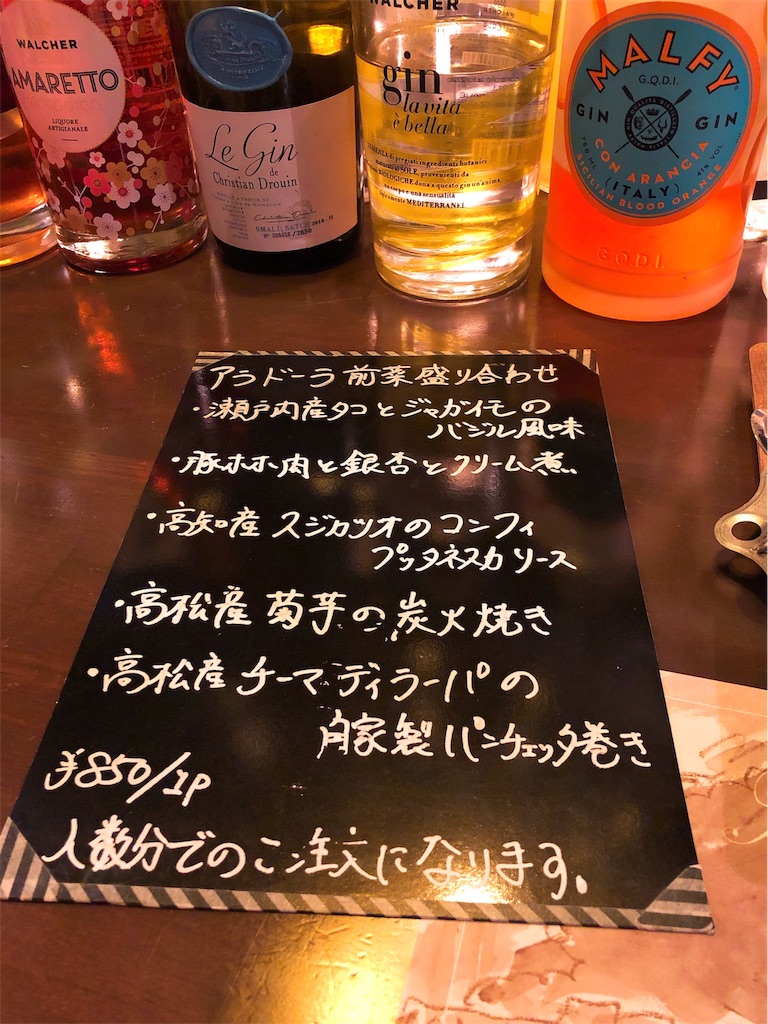 WALCHER
AMARETTO
LIQUORE
ARTIGIANALE
Le Gin
de
Christian Drouin
SMALL BATCH
WALCHER
gin
la vita
è bella
di pregiati ingredienti botanici
SOLE, provenienti da
BIOLOGICHE dona a questo gin un'anima,
un corpo e una sensualità
MEDITERRANEI.
MALFY
G.Q.D.I.
GIN GIN
CON ARANCIA
(ITALY)
SICILIAN BLOOD ORANGE
G.Q.D.I.
アラドーラ前菜盛り合わせ
・瀬戸内産タコとジャガイモの
バジル風味
・豚ホホ肉と銀杏とクリーム煮
・高知産スジカツオのコンフィ
プッタネスカソース
・高松産菊芋の炭火焼き
・高松産チーマディラーパの
自家製パンチェッタ巻き
¥850/1p
人数分でのご注文になります。